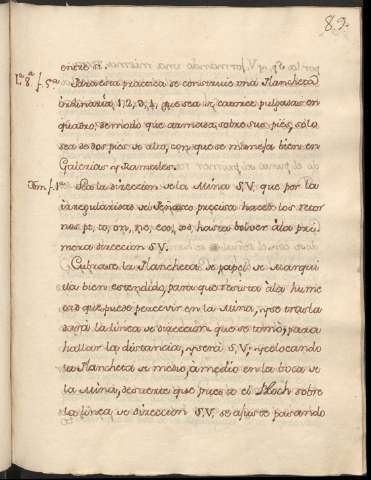 89.
entre sí.
Lª. 8ª. f. 5ª. Para esta practica se construie una Plancheta
ordinaria, 1, 2, 3, 4, que sea de catorce pulgadas en
quadro; de modo que armada, sobre sus pies, solo
sea de dos pies de alto, con que se maneja bien en
Galerias y Ramales.
f. 1ª. Sea la direccion de la Mina S.V. que por la
irregularidad del Peñasco precisa hacer los retor
nos hasta bolver á la pri
mera direccion S.V.
Cubrase la Plancheta de papel de Marqui
lla bien estendido, para que resista á la hume
dad que puede percevir en la Mina, y se trasla
dará la linea de direccion que se tomó, para
hallar la distancia, y será S.V; y colocando
la Plancheta de medio á medio en la boca de
la Mina, de suerte que puesto el sobre
la linea de direccion S.V. se ajuste pasando